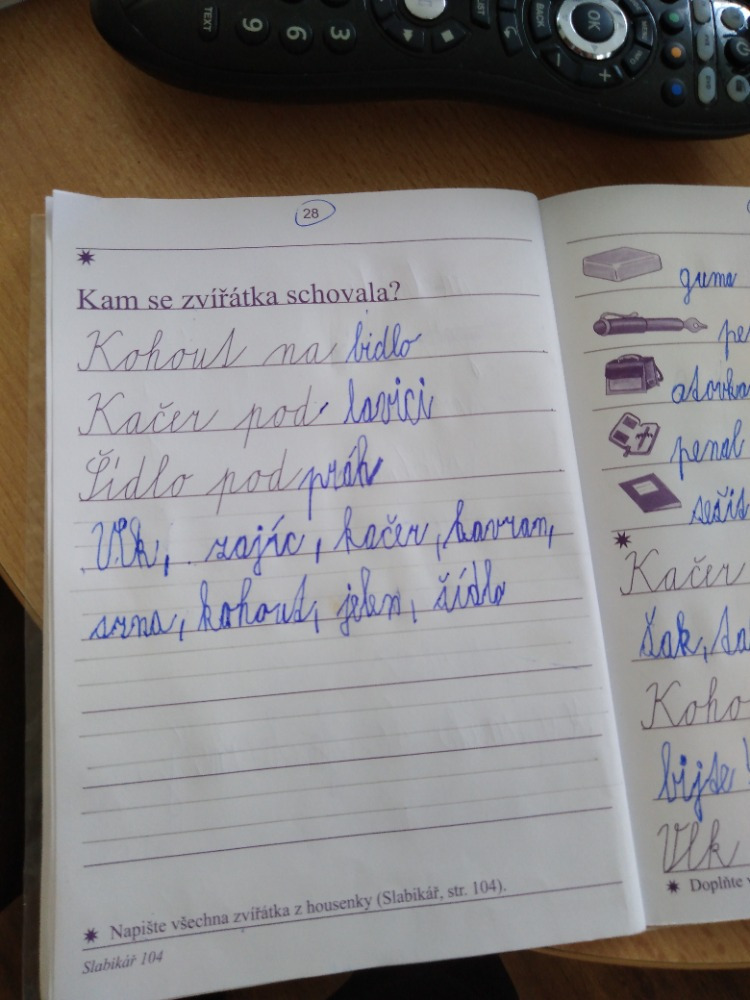 TEXT
9
6
3
LIST
BACK
OK
28
Kam se zvířátka schovala?
Kohout na bidlo
Kačer pod lavici
Šídlo pod práh
Vlk, zajíc, kačer, havran,
srna, kohout, jelen, šídlo
Napište všechna zvířátka z housenky (Slabikář, str. 104).
Slabikář 104
guma
pe
penal
sešit
Kačer
Koho
bijte!
Vlk
Doplňte v